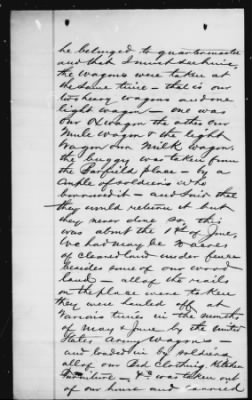 he belonged to quartermaster
and that I must see him,
the wagons were taken at
the same time – that is our
two heavy wagons and one
light wagon – one was
our Ox wagon the other our
Mule wagon & the light
wagon our Milk wagon.
the buggy was taken from
the Fairfield place – by a
couple of soldiers who
borrowed it – and said that
they would return it but
they never done so, this
was about the 1st of June,
we had may be 70 acres
of cleared land under fence
besides some of our wood
land – all of the rails
on the place were taken
they were hauled off at
various times in the month
of May & June by the United
States Army Wagons –
and loaded in by soldiers,
all of our Bed Clothing, Kitchen
Furniture – &c was taken out
of our house and carried